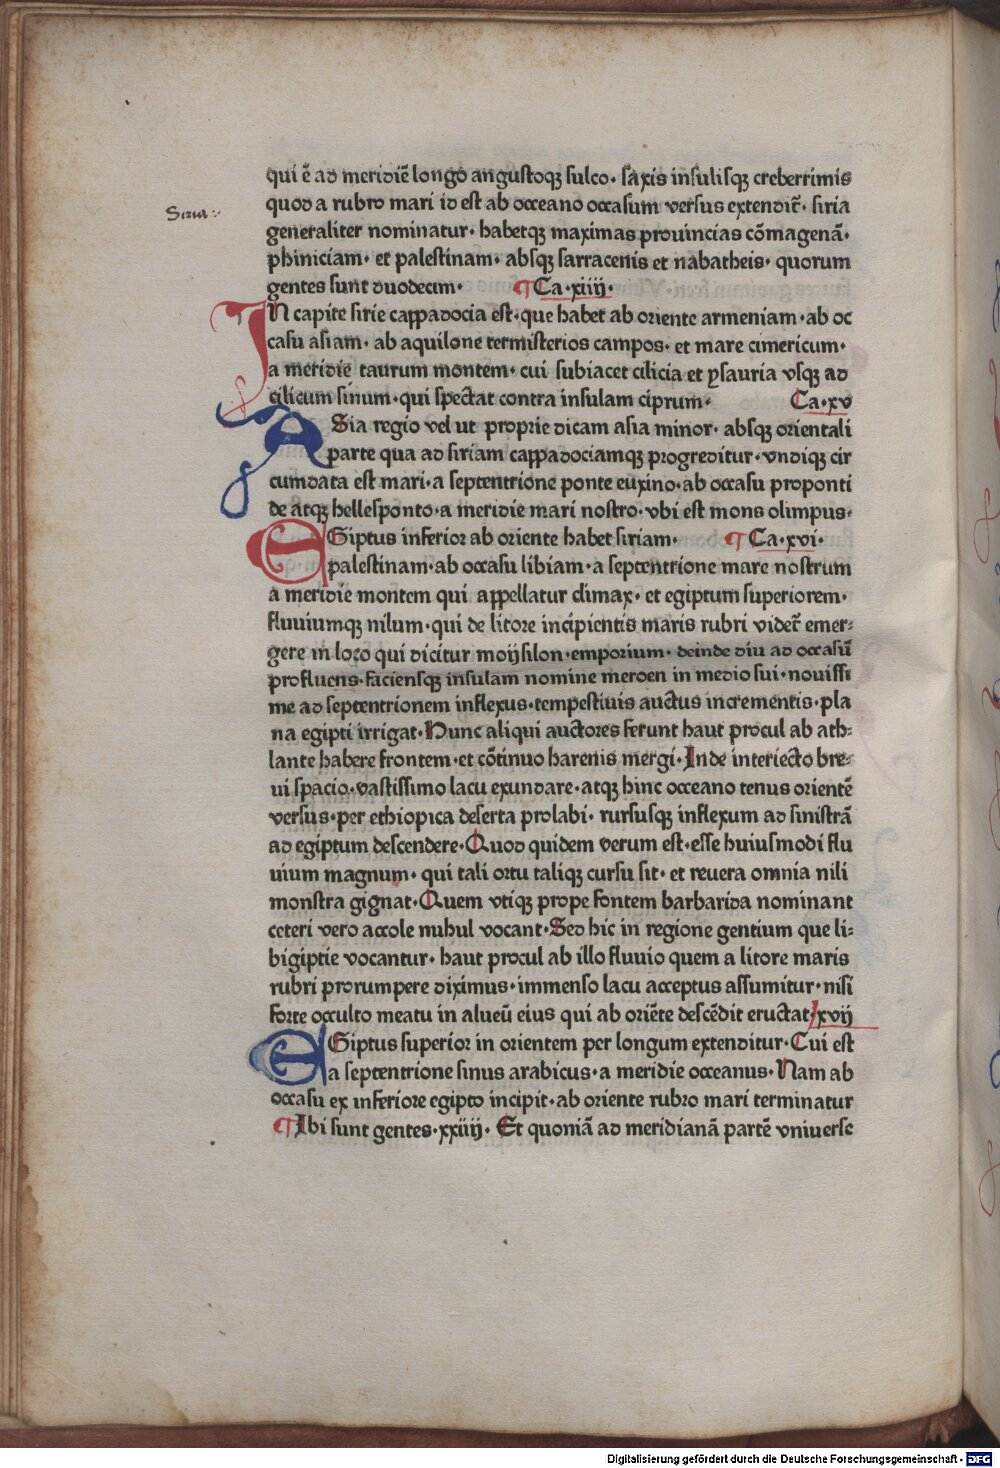 qui ē ad meridiē longo angustoqꝫ sulco· saxis insulisqꝫ creberrimis
Siria
quod a rubro mari id est ab occeano occasum versus extendit̄· siria
generaliter nominatur· habetqꝫ maximas prouincias cōmagenā·
phiniciam· et palestinam· absqꝫ sarracenis et nabatheis· quorum
gentes sunt duodecim· ¶ Ca·xiiij·
IN capite sirie cappadocia est· que habet ab oriente armeniam· ab oc
casu asiam· ab aquilone termisterios campos· et mare cimericum·
a meridie taurum montem· cui subiacet cilicia et ysauria vsqꝫ ad
cilicum sinum· qui spectat contra insulam ciprum· Ca·xv
ASia regio vel ut proprie dicam asia minor· absqꝫ orientali
parte qua ad siriam cappadociamqꝫ progreditur· vndiqꝫ cir
cumdata est mari· a septentrione ponte euxino· ab occasu proponti
de atqꝫ hellesponto· a meridie mari nostro· vbi est mons olimpus·
EGiptus inferior ab oriente habet siriam· ¶ Ca·xvi·
palestinam· ab occasu libiam· a septentrione mare nostrum
a meridie montem qui appellatur climax· et egiptum superiorem·
fluuiumqꝫ nilum· qui de litore incipientis maris rubri videt̄ emer⸗
gere in loco qui dicitur moijsilon· emporium· deinde diu ad occasū
profluens· faciensqꝫ insulam nomine meroen in medio sui· nouissi
me ad septentrionem inflexus· tempestiuis auctus incrementis· pla
na egipti irrigat· Nunc aliqui auctores ferunt haut procul ab ath⸗
lante habere frontem· et cōtinuo harenis mergi· Inde interiecto bre⸗
ui spacio· vastissimo lacu exundare· atqꝫ hinc occeano tenus orientē
versus· per ethiopica deserta prolabi· rursusqꝫ inflexum ad sinistrā
ad egiptum descendere· Quod quidem verum est· esse huiusmodi flu
uium magnum· qui tali ortu taliqꝫ cursu sit· et reuera omnia nili
monstra gignat· Quem vtiqꝫ prope fontem barbarida nominant
ceteri vero accole nuhul vocant· Sed hic in regione gentium que li⸗
bigiptie vocantur· haut procul ab illo fluuio quem a litore maris
rubri prorumpere diximus· immenso lacu acceptus assumitur· nisi
forte occulto meatu in alueū eius qui ab oriēte descēdit eructat· xvij
EGiptus superior in orientem per longum extenditur· Cui est
a septentrione sinus arabicus· a meridie occeanus· Nam ab
occasu ex inferiore egipto incipit· ab oriente rubro mari terminatur
¶ Ibi sunt gentes· xxiiij· Et quoniā ad meridianā partē vniuerse
Digitalisierung gefördert durch die Deutsche Forschungsgemeinschaft - DFG